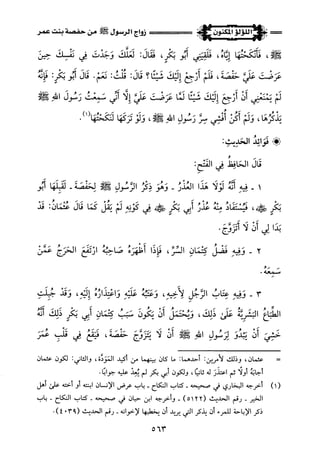 اللؤلؤ المكنون
زواج الرسول ﷺ من حفصة بنت عمر
ﷺ، فَأَنْكَحْتُهَا إِيَّاهُ، فَلَقِيَنِي أَبُو بَكْرٍ، فَقَالَ: لَعَلَّكَ وَجَدْتَ فِي نَفْسِكَ حِينَ
عَرَضْتَ عَلَيَّ حَفْصَةَ، فَلَمْ أَرْجِعْ إِلَيْكَ شَيْئًا؟ قَالَ: قُلْتُ: نَعَمْ. قَالَ أَبُو بَكْرٍ: فَإِنَّهُ
لَمْ يَمْنَعْنِي أَنْ أَرْجِعَ إِلَيْكَ شَيْئًا لَمَّا عَرَضْتَ عَلَيَّ إِلَّا أَنِّي سَمِعْتُ رَسُولَ اللهِ ﷺ
يَذْكُرُهَا، وَلَمْ أَكُنْ أُفْشِي سِرَّ رَسُولِ اللهِ ﷺ، وَلَوْ تَرَكَهَا نَكَحْتُهَا(١).
فَوَائِدُ الحَدِيثِ:
قَالَ الحَافِظُ فِي الفَتْحِ:
١ - فِيهِ أَنَّهُ لَوْلَا هَذَا العُذْرُ - وَهُوَ ذِكْرُ الرَّسُولِ ﷺ لِحَفْصَةَ - لَقَبِلَهَا أَبُو
بَكْرٍ، فَيُسْتَفَادُ مِنْهُ عُذْرُ أَبِي بَكْرٍ فِي كَوْنِهِ لَمْ يَقُلْ كَمَا قَالَ عُثْمَانُ: قَدْ
بَدَا لِي أَنْ لَا أَتَزَوَّجَ.
٢ - وَفِيهِ فَضْلُ كِتْمَانِ السِّرِّ، فَإِذَا أَظْهَرَهُ صَاحِبُهُ ارْتَفَعَ الحَرَجُ عَمَّنْ
سَمِعَهُ.
٣ - وَفِيهِ عِتَابُ الرَّجُلِ لِأَخِيهِ، وَعَتْبُهُ عَلَيْهِ وَاعْتِذَارُهُ إِلَيْهِ، وَقَدْ جُبِلَتِ
الطِّبَاعُ البَشَرِيَّةُ عَلَى ذَلِكَ، وَيُحْتَمَلُ أَنْ يَكُونَ سَبَبُ كِتْمَانِ أَبِي بَكْرٍ ذَلِكَ أَنَّهُ
خَشِيَ أَنْ يَبْدُوَ لِرَسُولِ اللهِ ﷺ أَنْ لَا يَتَزَوَّجَ حَفْصَةَ، فَيَقَعُ فِي قَلْبِ عُمَرَ
= عثمان، وذلك لأمرين: أحدهما: ما كان بينهما من أكيد المودَّة، والثاني: لكون عثمان
أجابهُ أولًا ثم اعتذر له ثانيًا، ولكون أبي بكر لم يُعِدْ عليه جوابًا.
(١) أخرجه البخاري في صحيحه - كتاب النكاح - باب عرض الإنسان ابنته أو أخته على أهل
الخير - رقم الحديث (٥١٢٢)، وأخرجه ابن حبان في صحيحه - كتاب النكاح - باب
ذكر الإباحة للمرء أن يذكر التي يريد أن يخطبها لإخوانه - رقم الحديث (٤٠٣٩).
٥٦٣